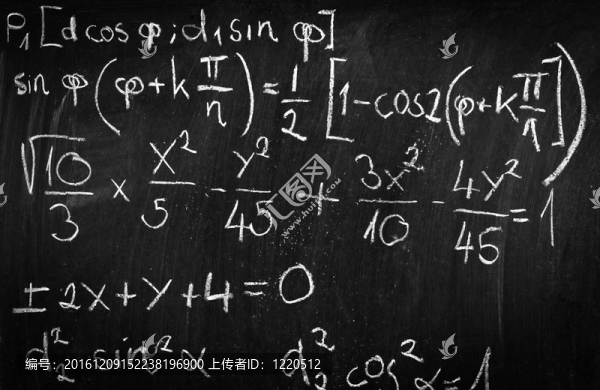 P₁[d cos φ; d₁ sin φ]
sin φ(φ+k π/n)=1/2[1-cos2(φ+k π/1)]
√10/3 × x²/5 - y²/45 + 3x²/10 - 4y²/45 = 1
± 2x+y+4=0
d² sin²α d² cos²α=1
编号：20161209152238196900 上传者ID：1220512